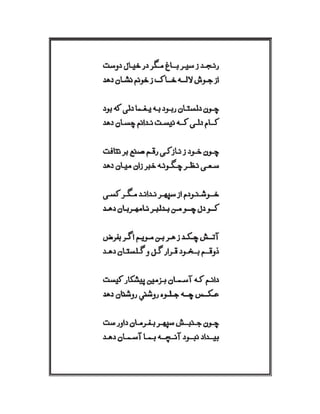 رنجد ز سیر باغ مگر در خیال دوست
از جوش لاله خاک ز خونم نشان دهد
چون دلستان ربود به یغما دلی که بود
کام دلی که نیست ندانم چسان دهد
چون خود ز نازکی رقم صنع بر نتافت
سعی نظر چگونه خبر زان میان دهد
خوشنودم از سپهر نداند مگر کسی
کو دل چو من بدلبر نامهربان دهد
آتش چکد ز هر بن مویم اگر بفرض
ذوقم بخود قرار گل و گلستان دهد
دانم که آسمان بزمین پیشکار کیست
عکس چه جلوه روشنی روشنان دهد
چون جنبش سپهر بفرمان داور ست
بیداد نبود آنچه بما آسمان دهد